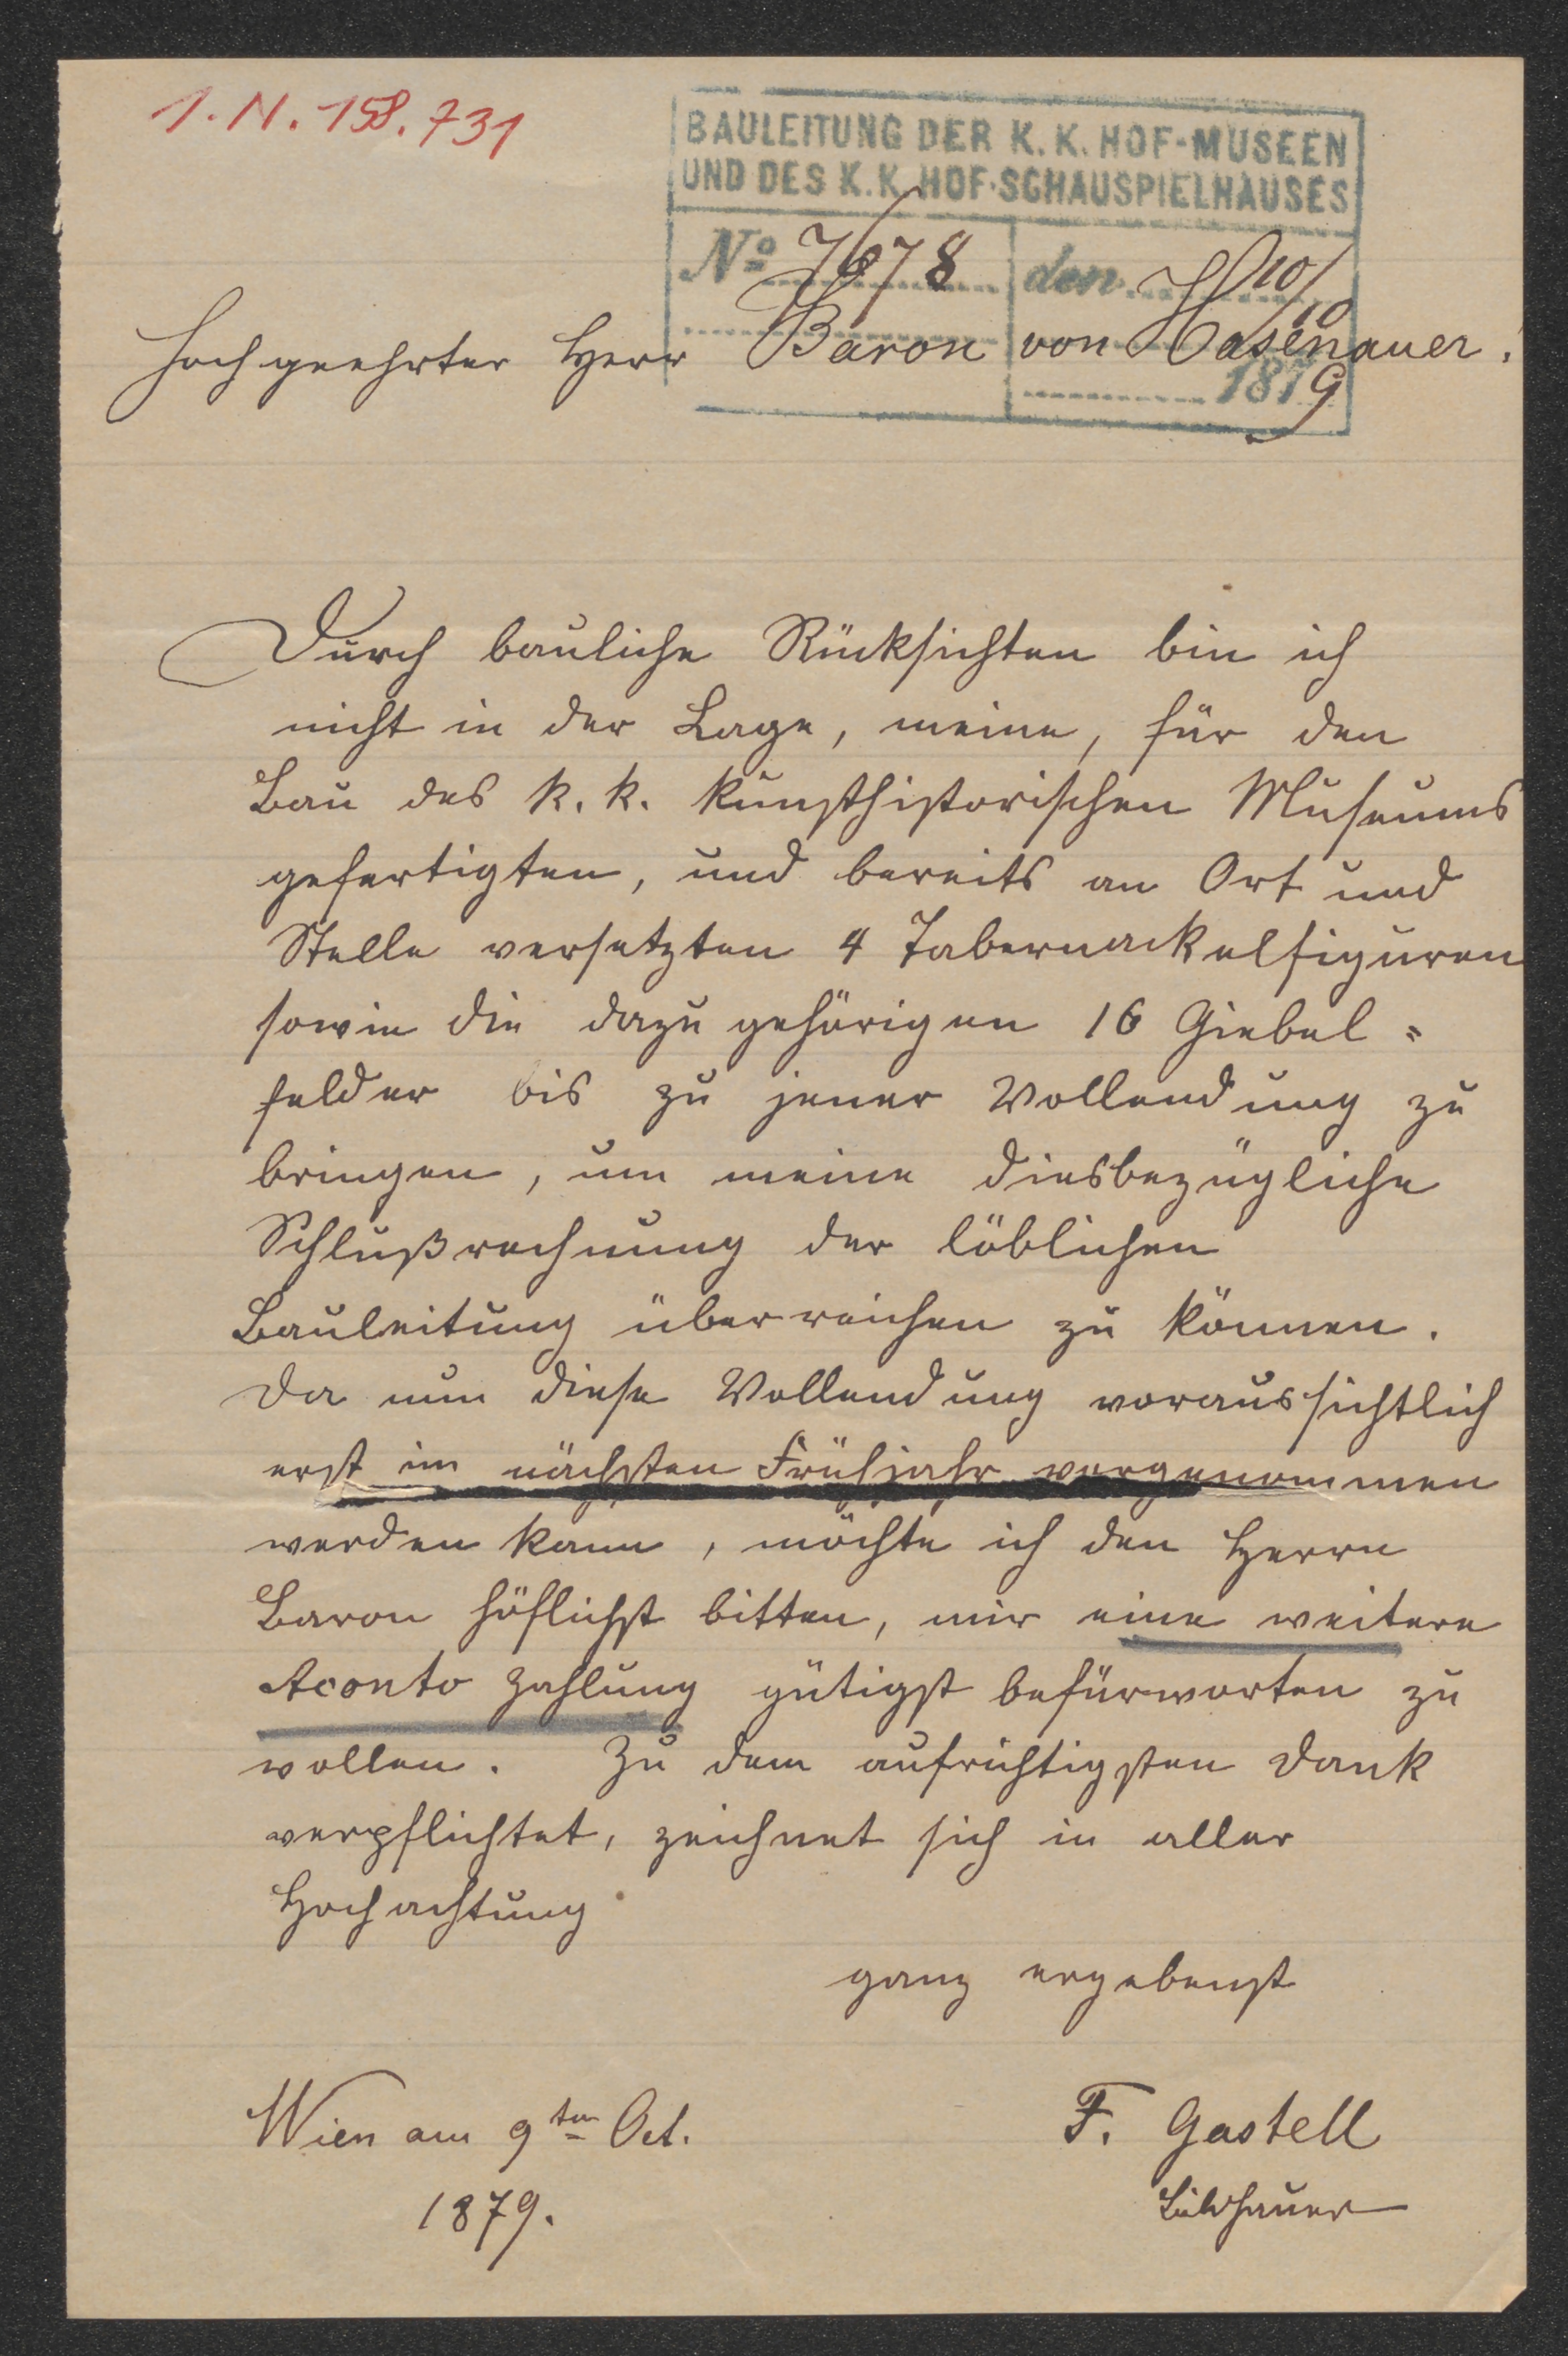 I.N. 158.731
BAULEITUNG DER K. K. HOF-MUSEEN
UND DES K. K. HOF-SCHAUSPIELHAUSES
No 7678 den 10/10
1879
Hochgeehrter Herr Baron von Hasenauer!
Durch bauliche Rücksichten bin ich
nicht in der Lage, meine, für den
Bau des k. k. kunsthistorischen Museums
gefertigten, und bereits an Ort und
Stelle versetzten 4 Tabernackelfiguren
sowie die dazu gehörigen 16 Giebel=
felder bis zu jener Vollendung zu
bringen, um meine diesbezügliche
Schlußrechnung der löblichen
Bauleitung überreichen zu können.
Da nun diese Vollendung voraussichtlich
erst im nächsten Frühjahr vorgenommen
werden kann, möchte ich den Herrn
Baron höflichst bitten, mir eine weitere
Aconto Zahlung gütigst befürworten zu
wollen. Zu dem aufrichtigsten Dank
verpflichtet, zeichnet sich in aller
Hochachtung
ganz ergebenst
Wien am 9ten Oct.
1879.
F. Gastell
Bildhauer